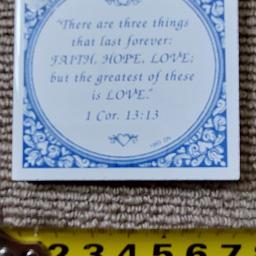 "There are three things
that last forever:
FAITH, HOPE, LOVE;
but the greatest of these
is LOVE."
1 Cor. 13:13
2 3 4 5 6 7